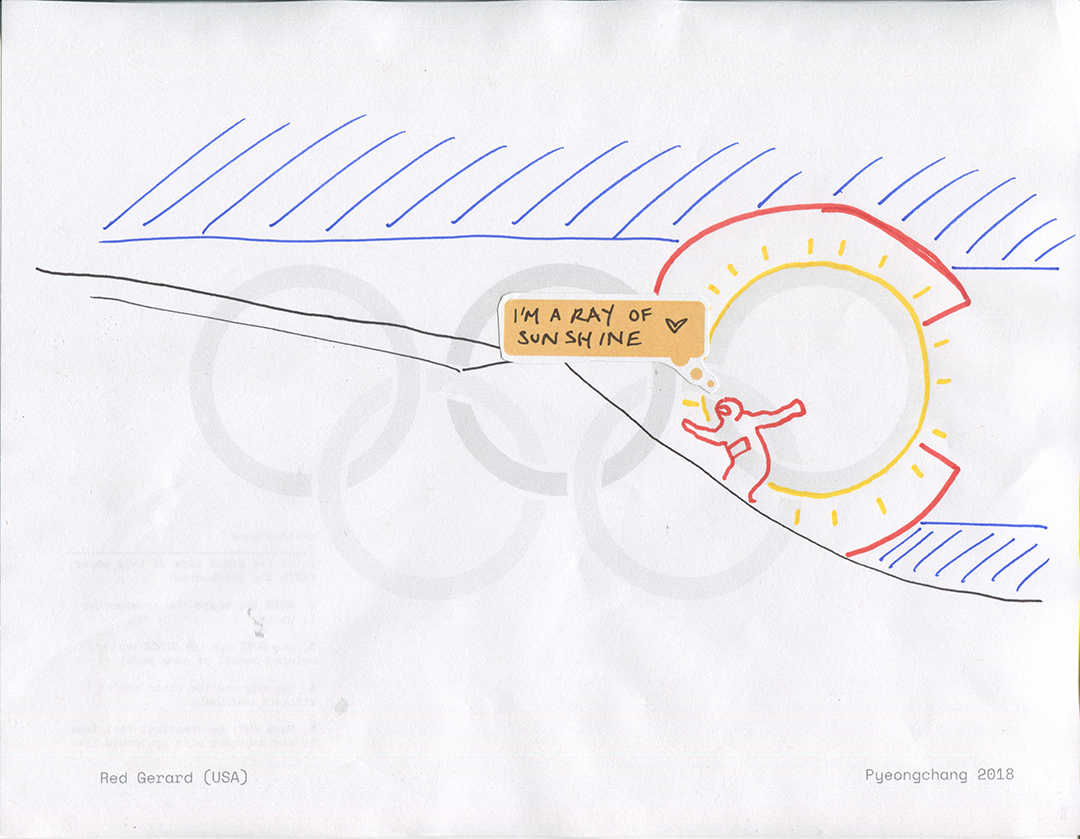 I'M A RAY OF
SUNSHINE
Red Gerard (USA)
Pyeongchang 2018